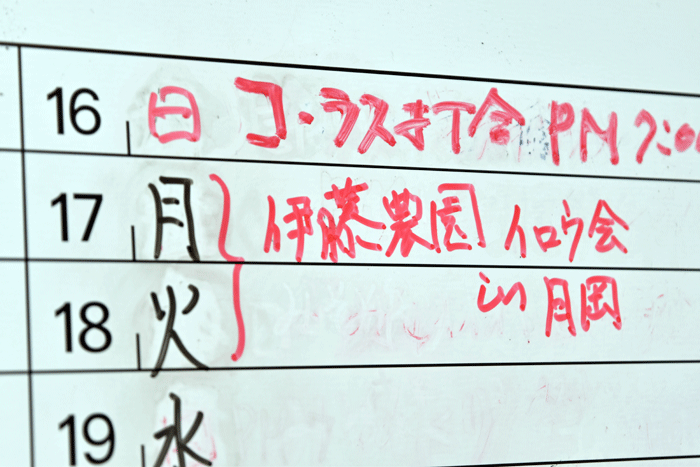 16 日 コーラス打合 PM 7:00
17 月 伊藤農園 イロウ会
18 火 in 月岡
19 水